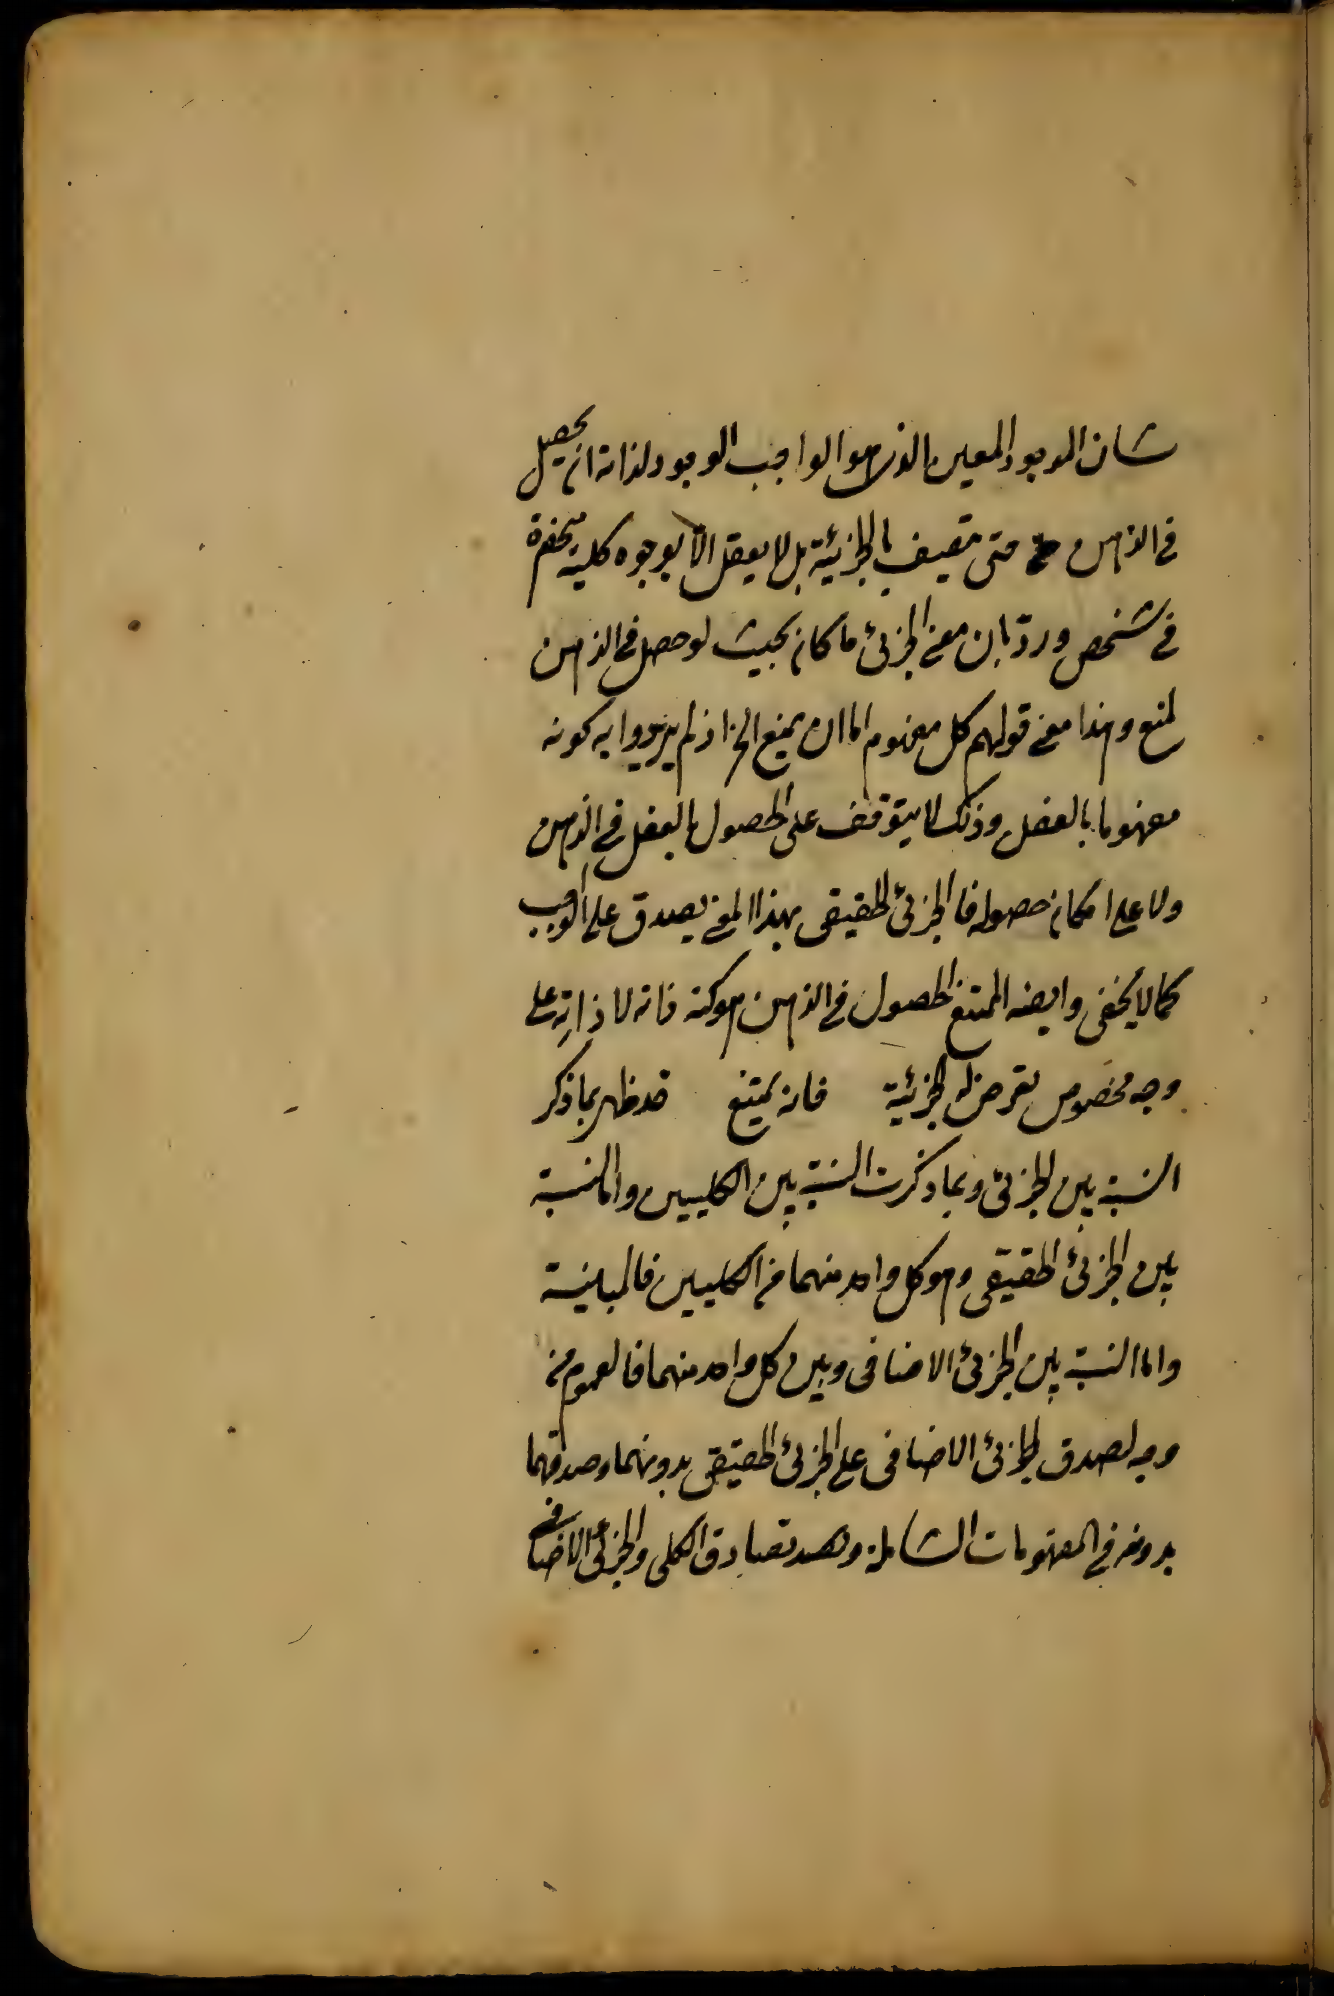 شان الموجود المعين الذى هو الواجب الوجود لذاته ان يحصل
فى الذهن حتى يتصف بالجزئية بل لا يعقل الا بوجوه كلية منحصرة
فى شخص ورد بان معنى الجزئى ما كان بحيث لو حصل فى الذهن
لمنع وهذا معنى قولهم كل مفهوم اما ان يمنع الخ اذ لم يريدوا به كونه
مفهوما بالفعل وذلك لا يتوقف على الحصول بالفعل فى الذهن
ولا على امكان حصوله فالجزئى الحقيقى بهذا المعنى يصدق على الواجب
كما لا يخفى وايضا الممتنع الحصول فى الذهن هو كنه فانه لا ذاته على
وجه مخصوص تعرض له الجزئية فانه يمتنع قد ظهر بما ذكر
النسبة بين الجزئى وبما ذكرت النسبة بين الكليين واما النسبة
بين الجزئى الحقيقى وهو كل واحد منهما من الكليين فالمباينة
واما النسبة بين الجزئى الاضافى وبين كل واحد منهما فالعموم من
وجه لصدق الجزئى الاضافى على الجزئى الحقيقى بدونهما وصدقهما
بدونه فى المفهومات الشاملة وتصادق الكلى والجزئى الاضافى